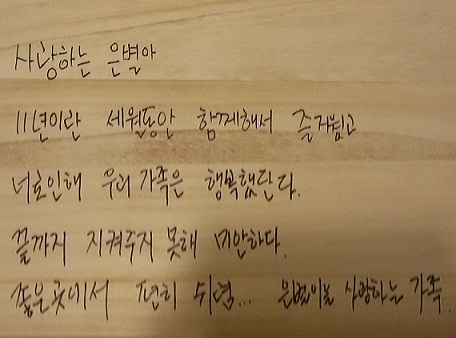 사랑하는 은별아
11년이란 세월동안 함께해서 즐거웠고
너로인해 우리 가족은 행복했단다.
끝까지 지켜주지 못해 미안하다.
좋은곳에서 편히 쉬렴... 은별이를 사랑하는 가족.